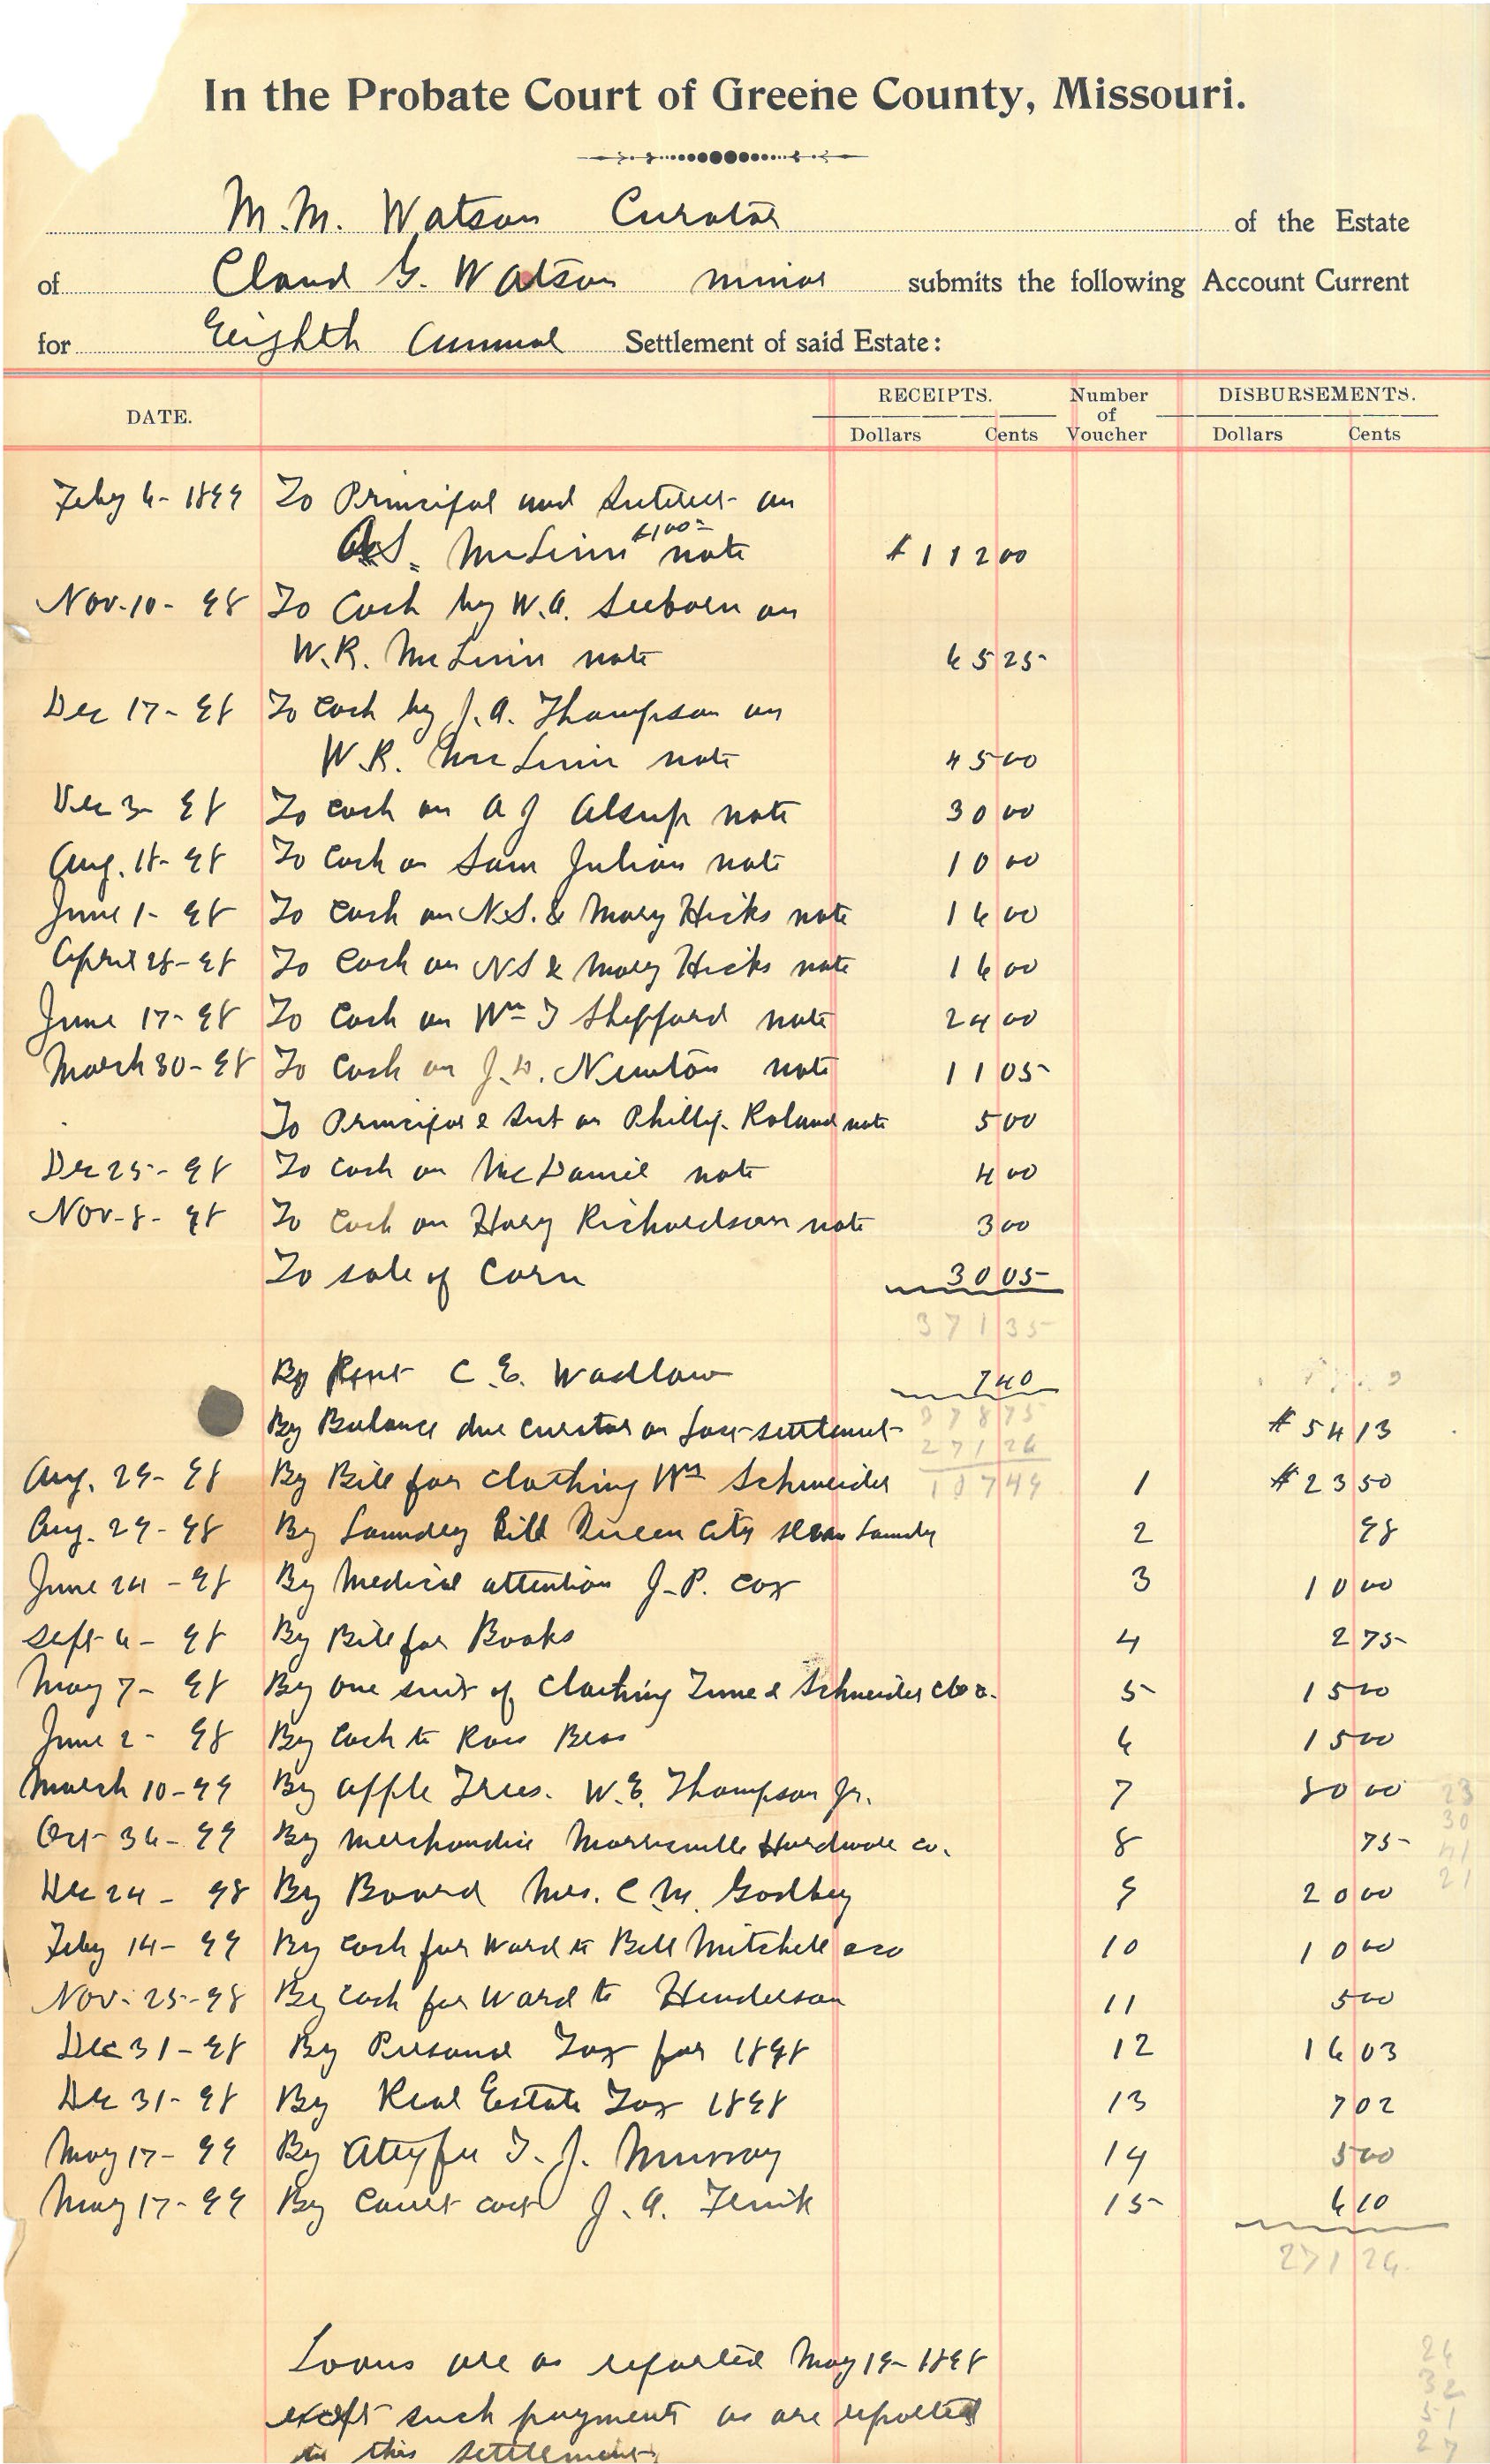 In the Probate Court of Greene County, Missouri.
M.M. Watson Curator of the Estate
of Claud G. Watson minor submits the following Account Current
for Eighth Annual Settlement of said Estate:
DATE. RECEIPTS. Number of Voucher DISBURSEMENTS.
Dollars Cents Dollars Cents
Feby 6- 1899 To Principal and Interest on
McLinn $100= note $112 00
Nov-10- 98 To Cash by W.A. on
W.R. McLinn note 65 25
Dec 17- 98 To Cash by J.A. Thompson on
W.R. McLinn note 45 00
Dec 3- 98 To Cash on A J Alsup note 30 00
Aug. 18- 98 To Cash on Sam Julian note 10 00
June 1- 98 To Cash on N.S. & Mary Hicks note 16 00
April 28- 98 To Cash on N S & Mary Hicks note 16 00
June 17- 98 To Cash on Wm T Sheppard note 24 00
March 30- 98 To Cash on J. Newton note 11 05
To Principal & Int on Phillip Roland note 5 00
Dec 25- 98 To Cash on McDaniel note 4 00
Nov-8- 98 To Cash on Hary Richardson note 3 00
To sale of Corn 30 05
371 35
By Rent C.E. Wadlow 7 40
378 75
By Balance due curator on last settlement $54 13
271 26
Aug. 29- 98 By Bill for clothing Wm Schneider 107 49 1 $23 50
Aug. 29- 98 By Laundry Bill Queen City Steam Laundry 2 98
June 24- 98 By Medical attention J.P. Cox 3 10 00
Sept 6- 98 By Bill for Books 4 2 75
May 7- 98 By one suit of Clothing & Schneider 5 15 00
June 2- 98 By Cash to Ross 6 15 00
March 10-99 By apple Trees. W.E. Thompson Jr. 7 80 00 23
30
Oct- -99 By Merchandise Hardware Co. 8 75 41
Dec 24- 98 By Board Mrs. C.M. Godbey 9 20 00 21
Feby 14- 99 By Cash for Ward to Bell Mitchell 10 10 00
Nov-25-98 By Cash for Ward to Henderson 11 5 00
Dec 31-98 By Personal Tax for 1898 12 16 03
Dec 31- 98 By Real Estate Tax 1898 13 7 02
May 17- 99 By Atty fee T.J. Murray 14 5 00
May 17- 99 By Court cost J.A. 15 6 10
271 26
Loans are as reported May 19- 1898
except such payments as are reported
in this settlement
24
32
51
27